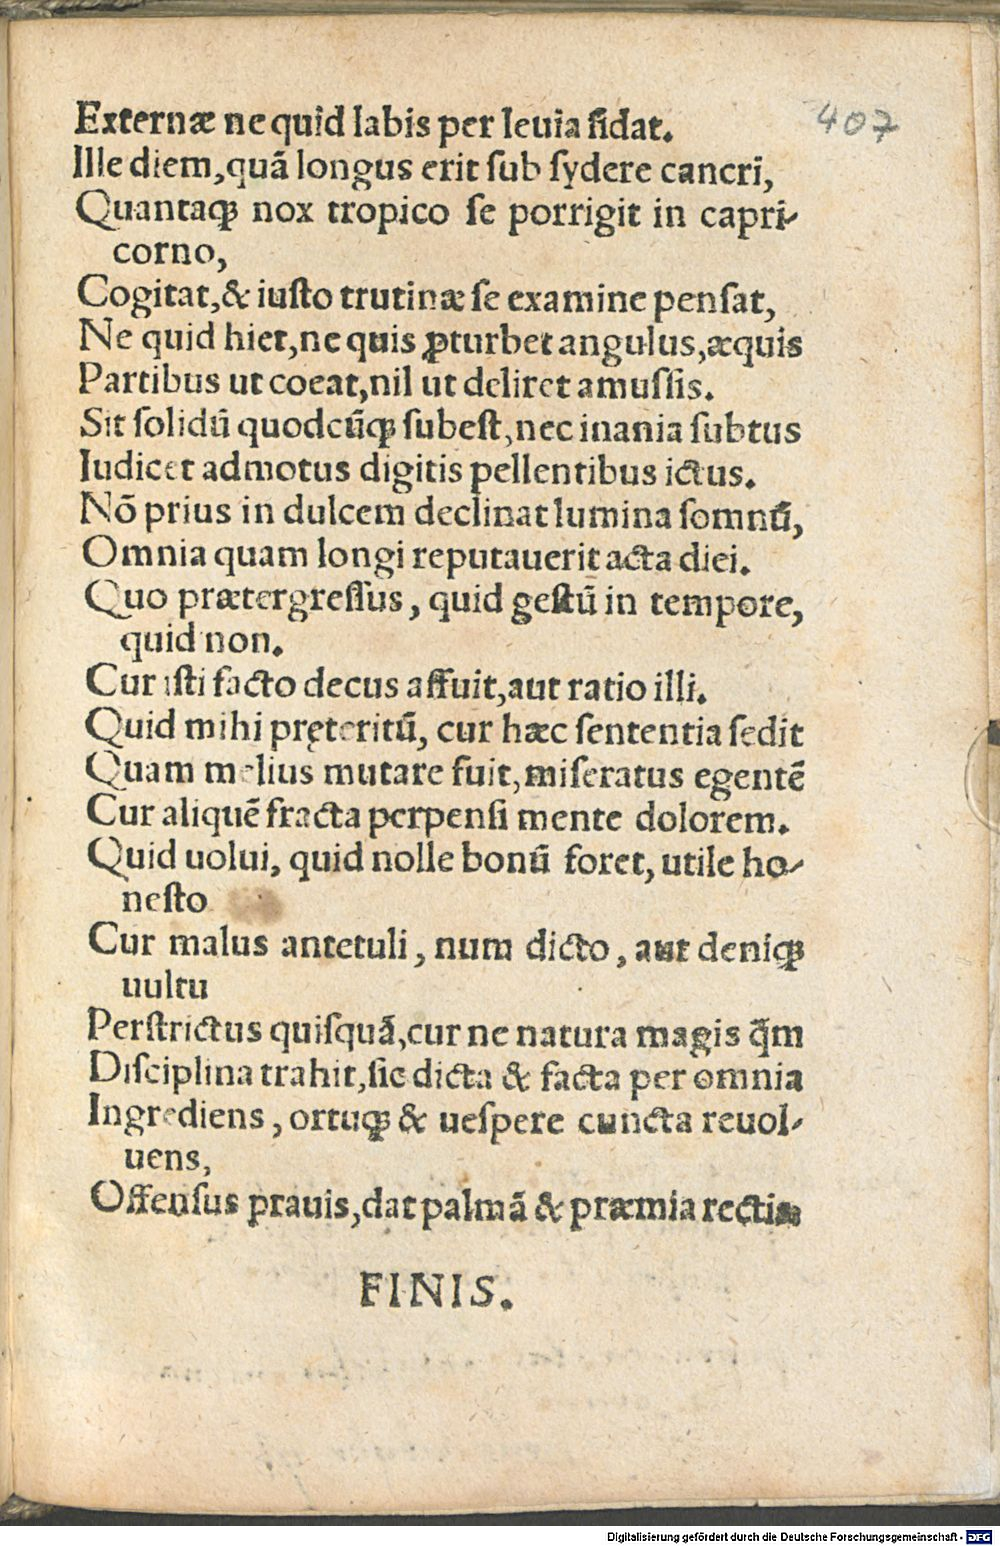 407
Externæ ne quid labis per leuia ſidat.
Ille diem,quã longus erit ſub ſydere cancri,
Quantaqꝫ nox tropico ſe porrigit in capri-
corno,
Cogitat,& iuſto trutinæ ſe examine penſat,
Ne quid hiet,ne quis ꝓturbet angulus,æquis
Partibus ut coeat,nil ut deliret amuſſis.
Sit ſolidũ quodcũqꝫ ſubeſt,nec inania ſubtus
Iudicet admotus digitis pellentibus ictus.
Nõ prius in dulcem declinat lumina ſomnũ,
Omnia quam longi reputauerit acta diei.
Quo prætergreſſus, quid geſtũ in tempore,
quid non.
Cur iſti facto decus affuit,aut ratio illi.
Quid mihi pręteritũ, cur hæc ſententia ſedit
Quam melius mutare fuit,miſeratus egentẽ
Cur aliquẽ fracta perpenſi mente dolorem.
Quid uolui, quid nolle bonũ foret, utile ho-
neſto
Cur malus antetuli, num dicto, aut deniqꝫ
uultu
Perſtrictus quiſquã,cur ne natura magis q̃m
Diſciplina trahit,ſic dicta & facta per omnia
Ingrediens, ortuqꝫ & ueſpere cuncta reuol-
uens,
Offenſus prauis,dat palmã & præmia rectis
FINIS.
Digitalisierung gefördert durch die Deutsche Forschungsgemeinschaft - DFG